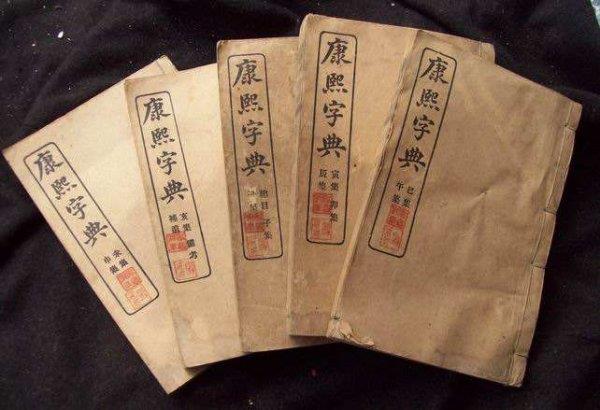 康熙字典
未集
申集
康熙字典
亥集 備考
補遺
康熙字典
總目 子集
康熙字典
寅集 卯集
辰集
康熙字典
巳集
午集